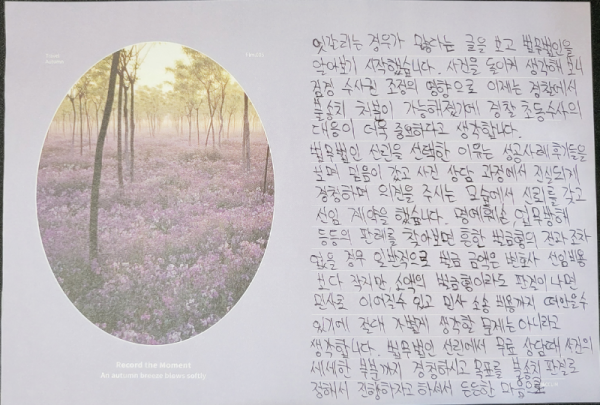 Record the Moment
엇갈리는 경우가 많다는 글을 보고 법무법인을
알아보기 시작했습니다. 사건을 돌이켜 생각해 보니
검경 수사권 조정의 영향으로 이제는 경찰에서
불송치 처분이 가능해졌기에 경찰 초동수사의
대응이 더욱 중요하다고 생각합니다.
법무법인 선린을 선택한 이유는 성공사례 후기들을
보며 믿음이 갔고 사전 상담 과정에서 진실되게
경청하며 의견을 주시는 모습에서 신뢰를 갖고
선임 계약을 했습니다. 명예훼손 업무방해
등등의 판례를 찾아보면 흔한 벌금형의 전과조차
없을 경우 일반적으로 벌금 금액은 변호사 선임비용
보다 작지만 소액의 벌금형이라도 판결이 나면
민사로 이어질수 있고 민사 소송 비용까지 떠안을수
있기에 절대 가볍게 생각할 문제는 아니라고
생각합니다. 법무법인 선린에서 무료 상담때 사건의
세세한 부분까지 경청하시고 목표를 불송치 판결로
정해서 진행하자고 하셔서 든든한 마음으로